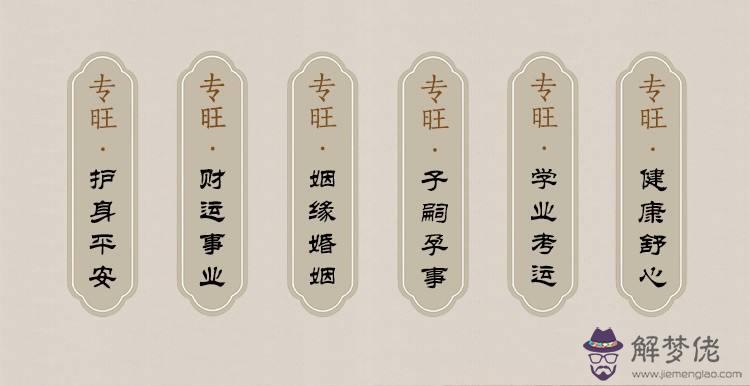 专旺·护身平安
专旺·财运事业
专旺·姻缘婚姻
专旺·子嗣孕事
专旺·学业考运
专旺·健康舒心
解梦佬
www.jiemenglao.com